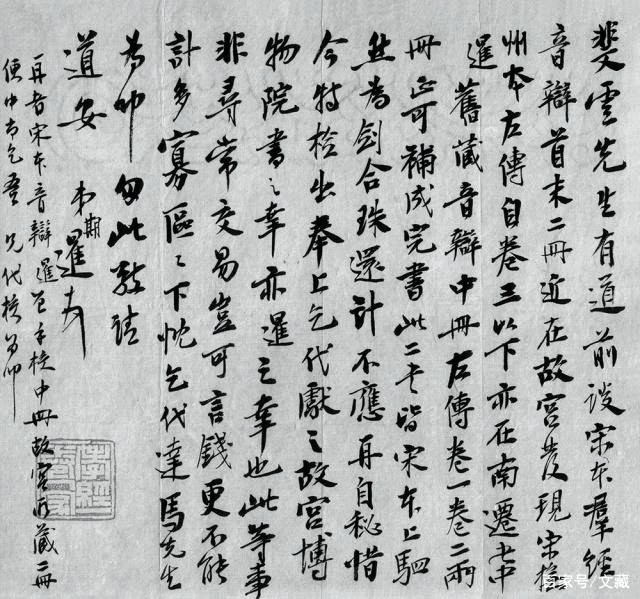 斐雲先生有道前談宋本羣經
音辯首末二冊近在故宮發現宋撫
州本左傳自卷三以下亦在南遷書中
暹舊藏音辯中冊左傳卷一卷二兩
冊正可補成完書此二書皆宋本上駟
然為劍合珠還計不應再自秘惜
今特檢出奉上乞代獻之故宮博
物院書之幸亦暹之幸也此等事
非尋常交易豈可言錢更不能
計多寡區區下忱乞代達馬先生
為叩匆此敬請
道安 弟期暹頓首
再者宋本音辯暹已手校中冊故宮所藏二冊
便中尚乞吾兄代校為叩
百家号/文藏